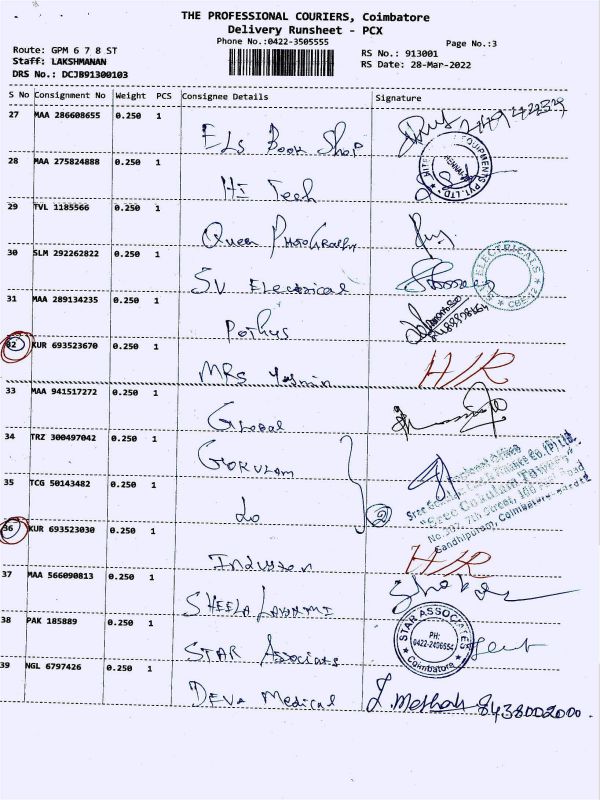 THE PROFESSIONAL COURIERS, Coimbatore
Delivery Runsheet - PCX
Phone No.:0422-3505555
Page No.:3
Route: GPM 6 7 8 ST
Staff: LAKSHMANAN
DRS No.: DCJB91300103
RS No.: 913001
RS Date: 28-Mar-2022
S No Consignment No Weight PCS Consignee Details Signature
27 MAA 286608655 0.250 1
ELS Book Shop
28 MAA 275824888 0.250 1
Hi Tech
29 TVL 1185566 0.250 1
Queen Photography
30 SLM 292262822 0.250 1
SV Electrical
ELECTRICALS
31 MAA 289134235 0.250 1
Pothys
32 KUR 693523670 0.250 1
MRS Yasmin H/R
33 MAA 941517272 0.250 1
Global
34 TRZ 300497042 0.250 1
GOKULAM
35 TCG 50143482 0.250 1
Do
2
"Sree Gokulam Towers"
Gandhipuram, Coimbatore
36 KUR 693523030 0.250 1
H/R
37 MAA 566090813 0.250 1
SHEELA LAXMI
38 PAK 185889 0.250 1
STAR Associats
STAR ASSOCIATES
PH:
0422-2456554
Coimbatore
39 NGL 6797426 0.250 1
DEVA Medical
8438002000.